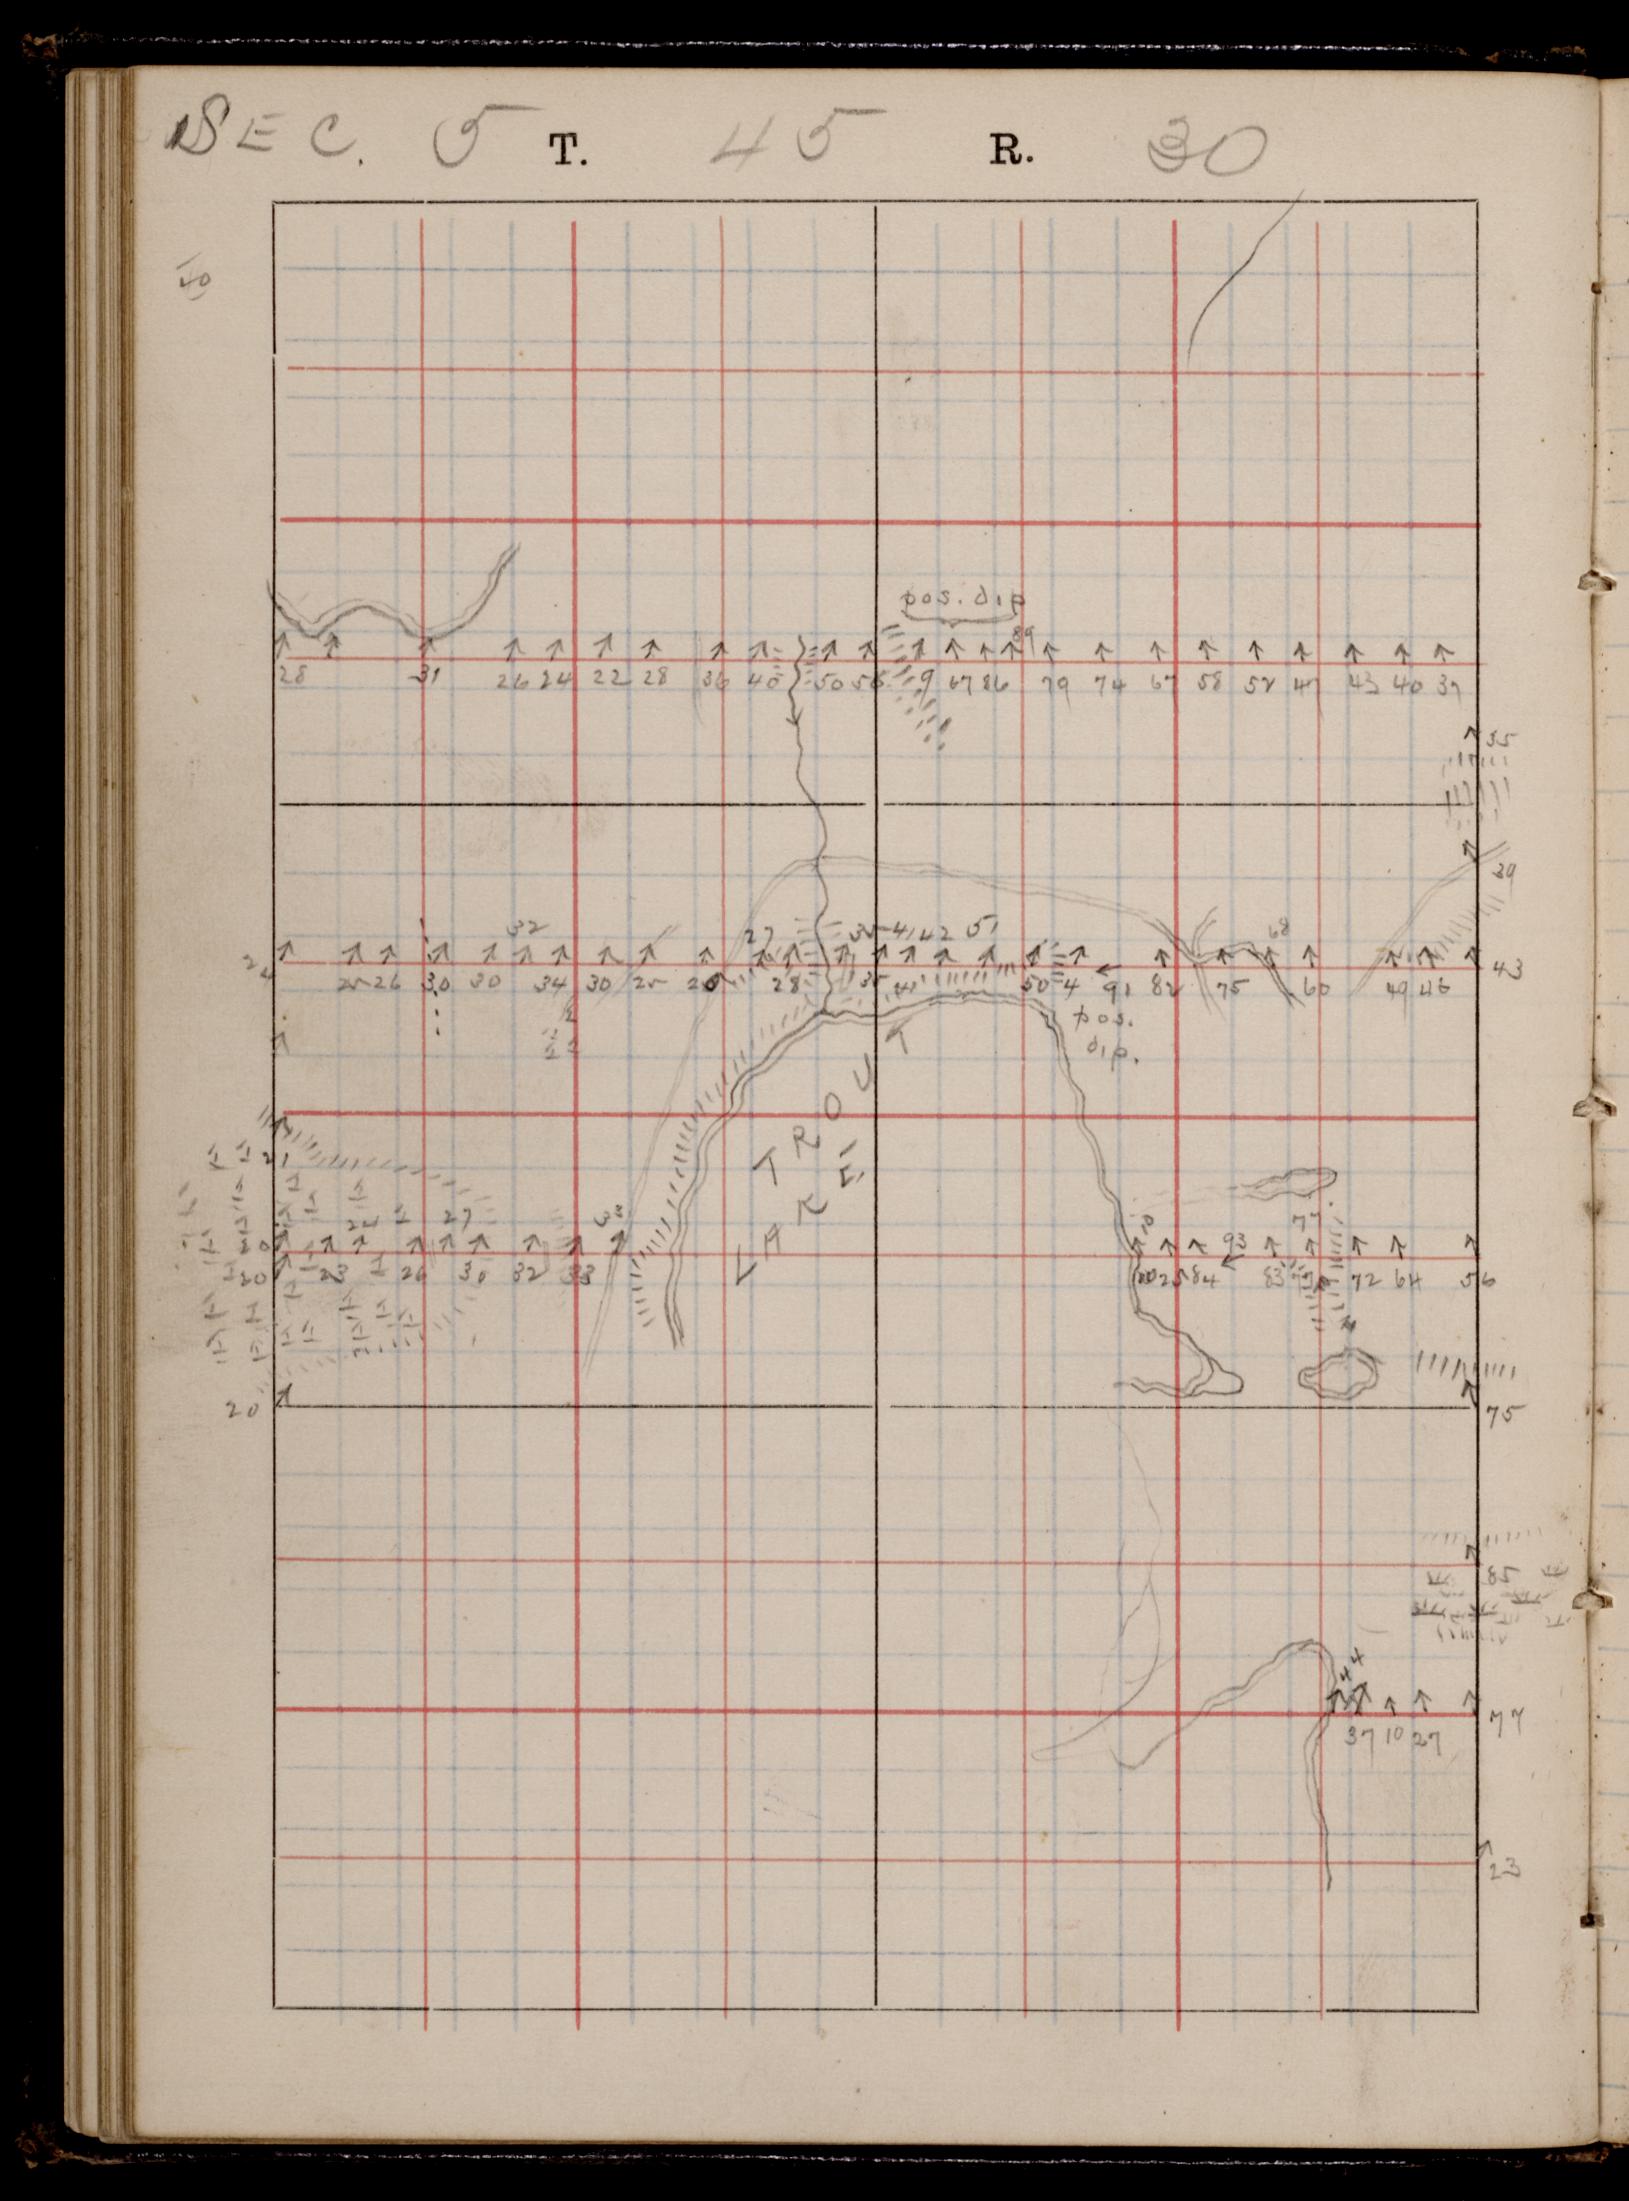 SEC. 5 T. 45 R. 30
pos. dip
89
28 31 26 24 22 28 36 40 50 56 9 67 86 79 74 67 58 52 47 43 40 37
35
39
32 27 35 41 42 51 68
25 26 30 30 34 30 25 28 35 50 4 91 82 75 60 49 46 43
pos.
dip.
TROUT
LAKE
21
27 38
10 93 77
20 23 26 30 32 33 20 25 84 83 72 64 56
20 75
85
44
37 10 27 77
23